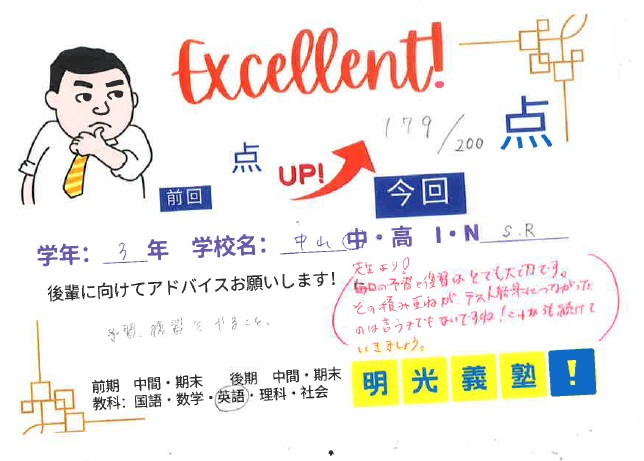 Excellent!
179/200 点
点 UP!
前回 今回
学年: 3年 学校名: 中山 中・高 I・N S.R
後輩に向けてアドバイスお願いします!
予習、復習をやること。
先生より!
毎日の予習と復習はとても大切です。
その積み重ねが、テスト結果につながった
のは言うまでもないですね!これからも続けて
いきましょう。
前期 中間・期末 後期 中間・期末
教科: 国語・数学・英語・理科・社会
明光義塾!